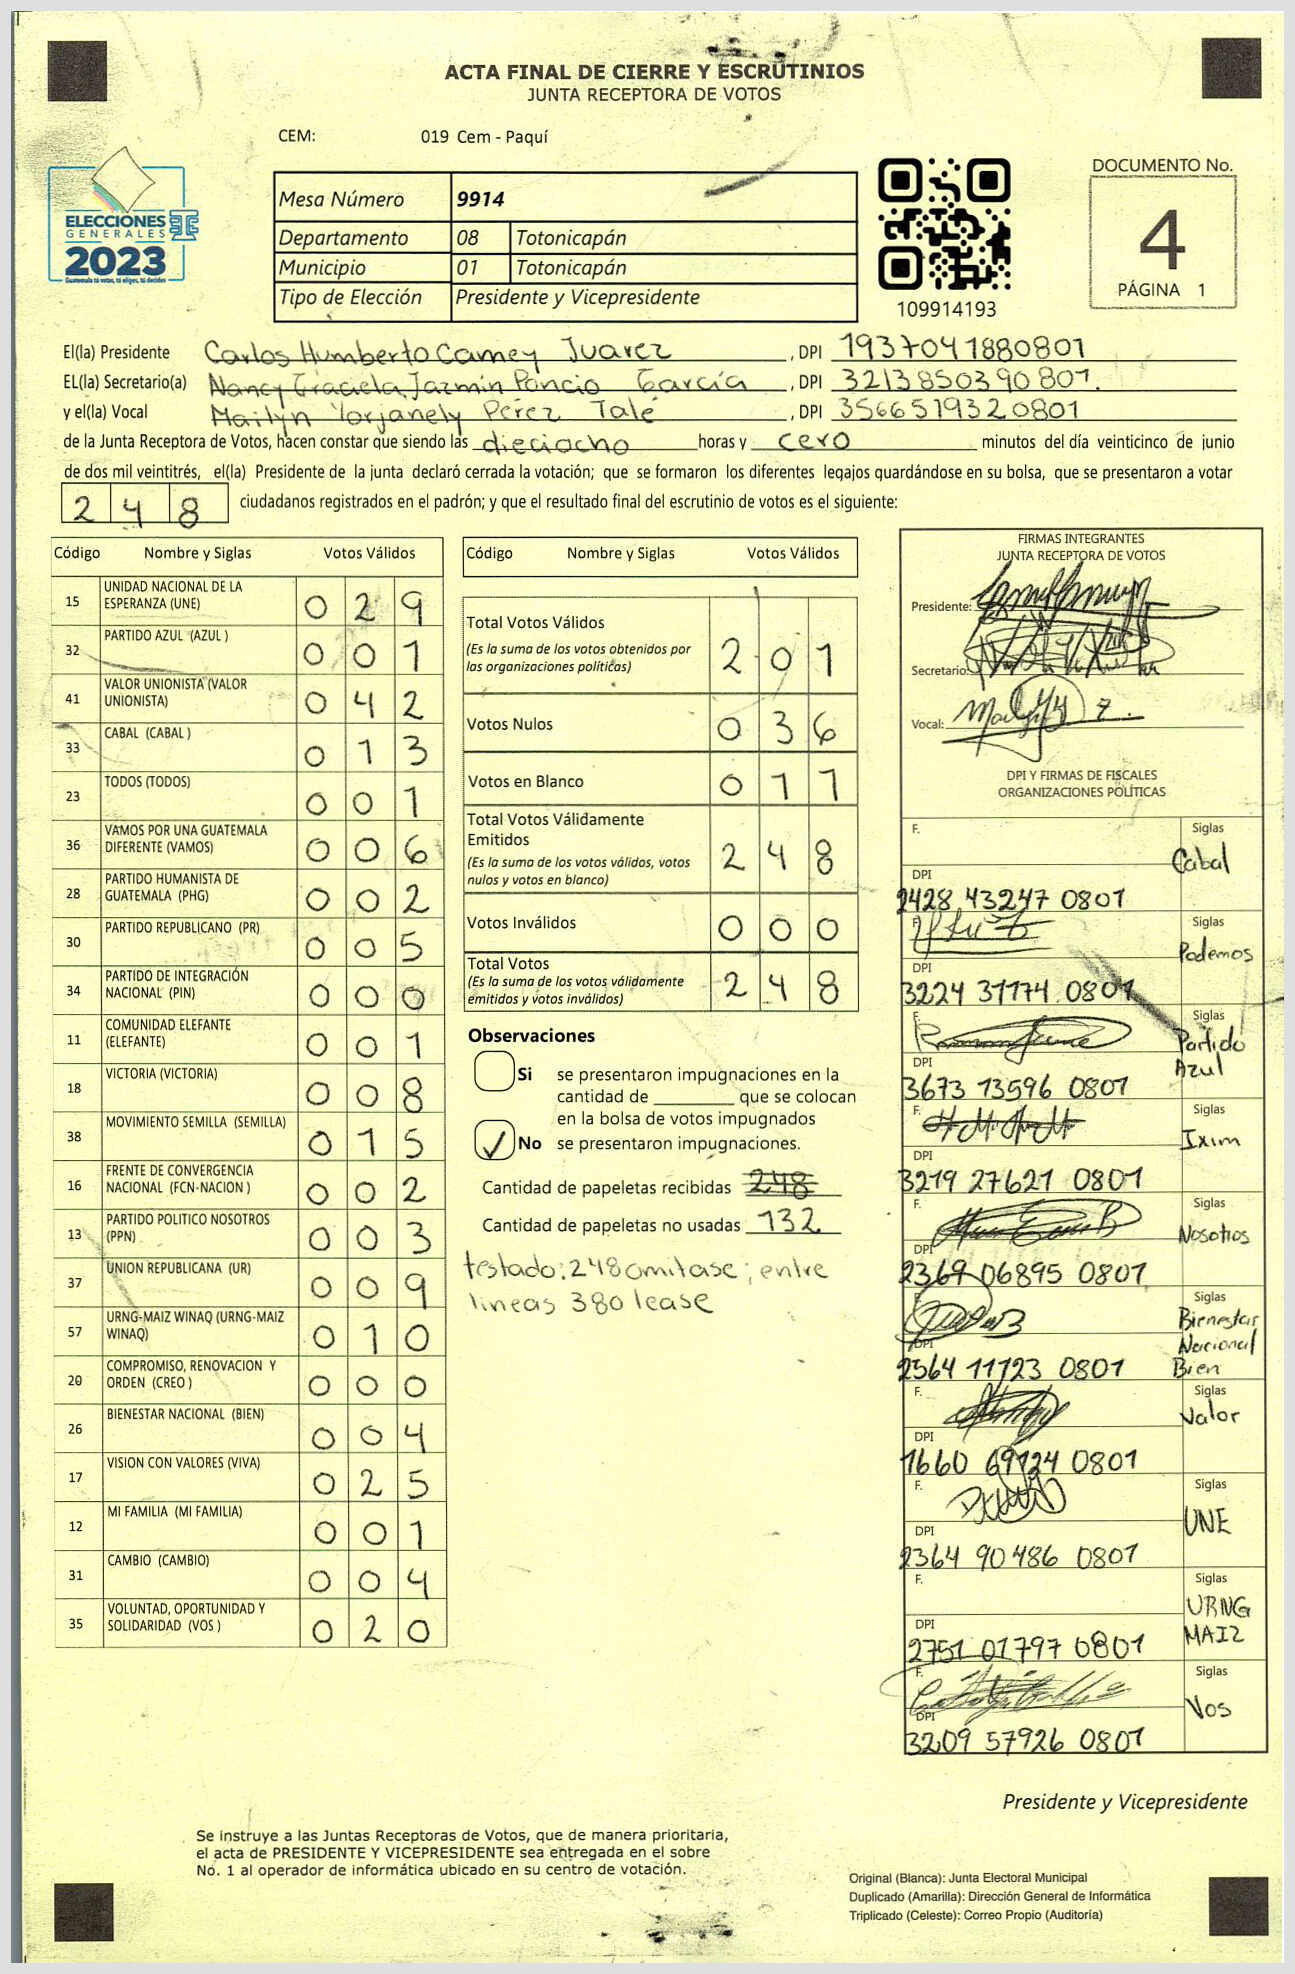 ACTA FINAL DE CIERRE Y ESCRUTINIOS
JUNTA RECEPTORA DE VOTOS
CEM: 019 Cem - Paquí
ELECCIONES
GENERALES
2023
Guatemala tú votas, tú eliges, tú decides
Mesa Número 9914
Departamento 08 Totonicapán
Municipio 01 Totonicapán
Tipo de Elección Presidente y Vicepresidente
109914193
DOCUMENTO No.
4
PÁGINA 1
El(la) Presidente Carlos Humberto Camey Juarez, DPI 1937041880801
EL(la) Secretario(a) Nancy Graciela Jazmín Poncio García, DPI 3213850390801.
y el(la) Vocal Mailyn Yorjanely Pérez Talé, DPI 3566519320801
de la Junta Receptora de Votos, hacen constar que siendo las dieciocho horas y cero minutos del día veinticinco de junio
de dos mil veintitrés, el(la) Presidente de la junta declaró cerrada la votación; que se formaron los diferentes legajos guardándose en su bolsa, que se presentaron a votar
248 ciudadanos registrados en el padrón; y que el resultado final del escrutinio de votos es el siguiente:
Código Nombre y Siglas Votos Válidos
15 UNIDAD NACIONAL DE LA
ESPERANZA (UNE) 0 2 9
32 PARTIDO AZUL (AZUL ) 0 0 1
41 VALOR UNIONISTA (VALOR
UNIONISTA) 0 4 2
33 CABAL (CABAL ) 0 1 3
23 TODOS (TODOS) 0 0 1
36 VAMOS POR UNA GUATEMALA
DIFERENTE (VAMOS) 0 0 6
28 PARTIDO HUMANISTA DE
GUATEMALA (PHG) 0 0 2
30 PARTIDO REPUBLICANO (PR) 0 0 5
34 PARTIDO DE INTEGRACIÓN
NACIONAL (PIN) 0 0 0
11 COMUNIDAD ELEFANTE
(ELEFANTE) 0 0 1
18 VICTORIA (VICTORIA) 0 0 8
38 MOVIMIENTO SEMILLA (SEMILLA) 0 1 5
16 FRENTE DE CONVERGENCIA
NACIONAL (FCN-NACION ) 0 0 2
13 PARTIDO POLITICO NOSOTROS
(PPN) 0 0 3
37 UNION REPUBLICANA (UR) 0 0 9
57 URNG-MAIZ WINAQ (URNG-MAIZ
WINAQ) 0 1 0
20 COMPROMISO, RENOVACION Y
ORDEN (CREO ) 0 0 0
26 BIENESTAR NACIONAL (BIEN) 0 0 4
17 VISION CON VALORES (VIVA) 0 2 5
12 MI FAMILIA (MI FAMILIA) 0 0 1
31 CAMBIO (CAMBIO) 0 0 4
35 VOLUNTAD, OPORTUNIDAD Y
SOLIDARIDAD (VOS ) 0 2 0
Código Nombre y Siglas Votos Válidos
Total Votos Válidos
(Es la suma de los votos obtenidos por
las organizaciones políticas) 2 0 1
Votos Nulos 0 3 6
Votos en Blanco 0 1 1
Total Votos Válidamente
Emitidos
(Es la suma de los votos válidos, votos
nulos y votos en blanco) 2 4 8
Votos Inválidos 0 0 0
Total Votos
(Es la suma de los votos válidamente
emitidos y votos inválidos) 2 4 8
Observaciones
Si se presentaron impugnaciones en la
cantidad de ________ que se colocan
en la bolsa de votos impugnados
✓ No se presentaron impugnaciones.
Cantidad de papeletas recibidas 248
Cantidad de papeletas no usadas 132
testado: 248 omitase; entre
lineas 380 lease
FIRMAS INTEGRANTES
JUNTA RECEPTORA DE VOTOS
Presidente:
Secretario:
Vocal:
DPI Y FIRMAS DE FISCALES
ORGANIZACIONES POLÍTICAS
F. Siglas
Cabal
DPI
2428 43247 0801
Siglas
Podemos
DPI
3224 31174 0801
F. Siglas
Partido
Azul
DPI
3673 13596 0801
F. Siglas
Ixim
DPI
3219 27621 0801
F. Siglas
Nosotros
DPI
2369 06895 0801
F. Siglas
Bienestar
Nacional
Bien
DPI
2564 11723 0801
F. Siglas
Valor
DPI
1660 69124 0801
F. Siglas
UNE
DPI
2364 90486 0801
F. Siglas
URNG
MAIZ
DPI
2751 01797 0801
F. Siglas
Vos
DPI
3209 57926 0801
Presidente y Vicepresidente
Se instruye a las Juntas Receptoras de Votos, que de manera prioritaria,
el acta de PRESIDENTE Y VICEPRESIDENTE sea entregada en el sobre
No. 1 al operador de informática ubicado en su centro de votación.
Original (Blanca): Junta Electoral Municipal
Duplicado (Amarilla): Dirección General de Informática
Triplicado (Celeste): Correo Propio (Auditoría)